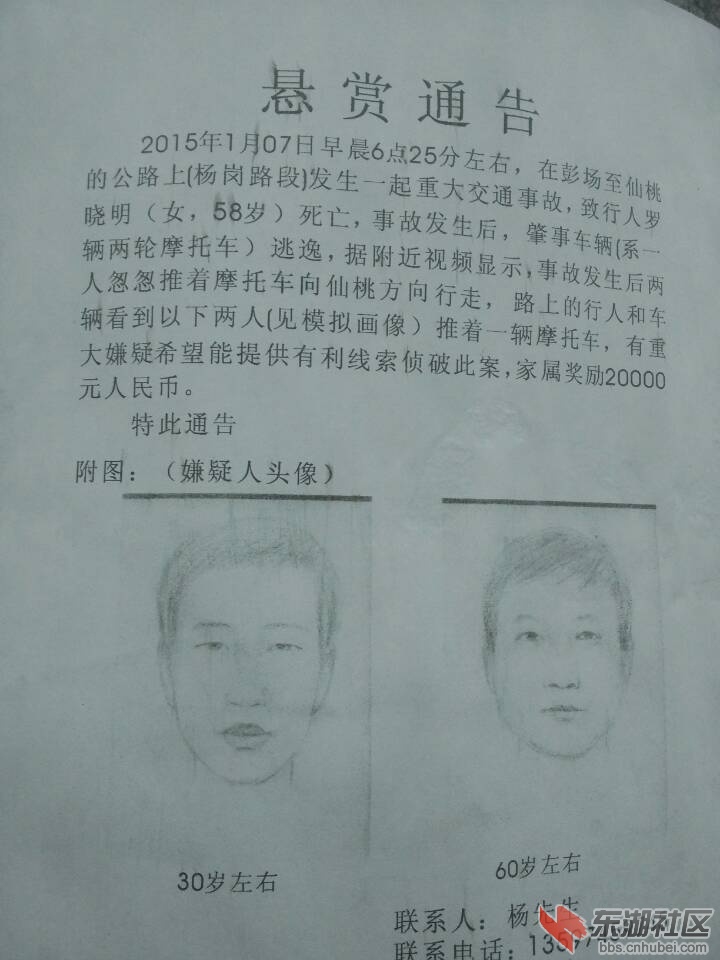 悬赏通告
2015年1月07日早晨6点25分左右，在彭场至仙桃
的公路上(杨岗路段)发生一起重大交通事故，致行人罗
晓明（女，58岁）死亡，事故发生后，肇事车辆(系一
辆两轮摩托车）逃逸，据附近视频显示，事故发生后两
人怱怱推着摩托车向仙桃方向行走，路上的行人和车
辆看到以下两人(见模拟画像）推着一辆摩托车，有重
大嫌疑希望能提供有利线索侦破此案，家属奖励20000
元人民币。
特此通告
附图：（嫌疑人头像）
30岁左右
60岁左右
联系人：杨先生
联系电话：13597
东湖社区
bbs.cnhubei.com